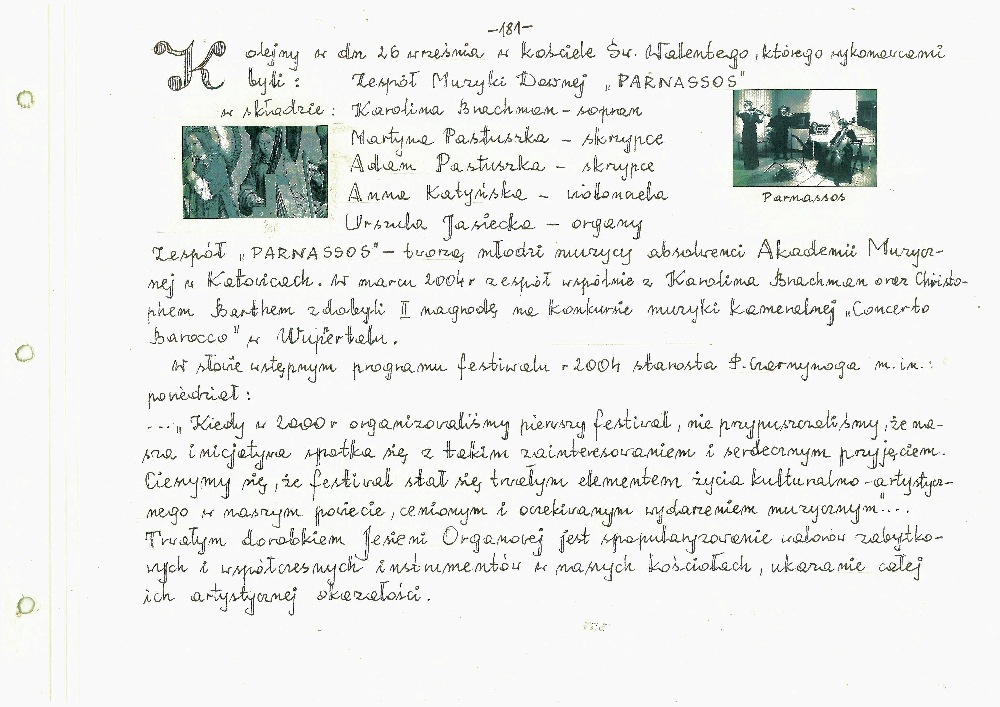 -181-
Kolejny w dn 26 września w kościele Św. Walentego, którego wykonawcami
byli: Zespół Muzyki Dawnej „PARNASSOS"
w składzie: Karolina Brachman - sopran
Martyna Pastuszka - skrzypce
Adam Pastuszka - skrzypce
Anna Katyńska - wiolonczela
Urszula Jasiecka - organy
Parnassos
Zespół „PARNASSOS" - tworzą młodzi muzycy absolwenci Akademii Muzycz-
nej w Katowicach. W marcu 2004r zespół wspólnie z Karolina Brachman oraz Christo-
phem Barthem zdobyli II nagrodę na konkursie muzyki kameralnej „Concerto
Barocco" w Wupertalu.
W słowie wstępnym programu festiwalu r 2004 starosta P. Czarnynoga m.in.:
powiedział:
...„ Kiedy w 2000r organizowaliśmy pierwszy festiwal, nie przypuszczaliśmy, że na-
sza inicjatywa spotka się z takim zainteresowaniem i serdecznym przyjęciem.
Cieszymy się, że festiwal stał się trwałym elementem życia kulturalno-artystycz-
nego w naszym powiecie, cenionym i oczekiwanym wydarzeniem muzycznym"...
Trwałym dorobkiem Jesieni Organowej jest spopularyzowanie walorów zabytko-
wych i współczesnych instrumentów w naszych kościołach, ukazanie całej
ich artystycznej okazałości.